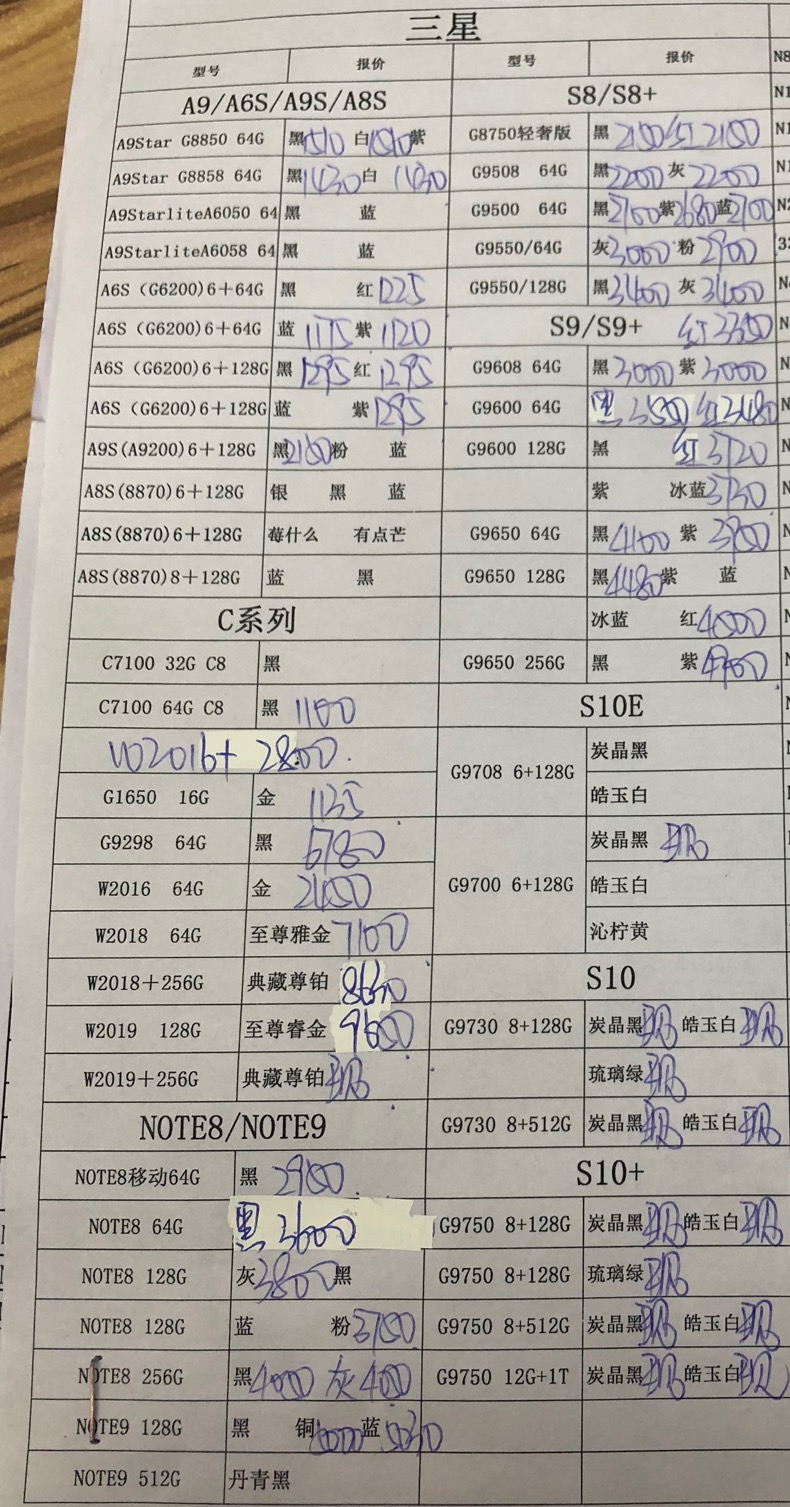 三星
型号 报价 型号 报价
A9/A6S/A9S/A8S S8/S8+
A9Star G8850 64G 黑1510 白1510紫 G8750轻奢版 黑 2150 红2150
A9Star G8858 64G 黑1430白 1430 G9508 64G 黑2200灰2200
A9StarliteA6050 64 黑 蓝 G9500 64G 黑2700紫2680蓝2700
A9StarliteA6058 64 黑 蓝 G9550/64G 灰3000粉2900
A6S (G6200)6+64G 黑 红1225 G9550/128G 黑3400灰3400
A6S (G6200)6+64G 蓝1175紫1120 S9/S9+ 红3350
A6S (G6200)6+128G 黑1295红1295 G9608 64G 黑3000紫3000
A6S (G6200)6+128G 蓝 紫1295 G9600 64G 黑3500红3480
A9S(A9200)6+128G 黑 粉 蓝 G9600 128G 黑 红3720
A8S(8870)6+128G 银 黑 蓝 紫 冰蓝3730
A8S(8870)6+128G 莓什么 有点芒 G9650 64G 黑4100紫
A8S(8870)8+128G 蓝 黑 G9650 128G 黑4480紫 蓝
C系列 冰蓝 红
C7100 32G C8 黑 G9650 256G 黑 紫
C7100 64G C8 黑 1180 S10E
W2016+ 2800. G9708 6+128G 炭晶黑
皓玉白
G1650 16G 金 1135
G9298 64G 黑 G9700 6+128G 炭晶黑
W2016 64G 金 2450 皓玉白
W2018 64G 至尊雅金7100 沁柠黄
W2018+256G 典藏尊铂 S10
W2019 128G 至尊睿金 G9730 8+128G 炭晶黑 皓玉白
W2019+256G 典藏尊铂 琉璃绿
NOTE8/NOTE9 G9730 8+512G 炭晶黑 皓玉白
NOTE8移动64G 黑 S10+
NOTE8 64G 黑 3600 G9750 8+128G 炭晶黑 皓玉白
NOTE8 128G 灰3800黑 G9750 8+128G 琉璃绿
NOTE8 128G 蓝 粉 G9750 8+512G 炭晶黑 皓玉白
NOTE8 256G 黑4000灰400 G9750 12G+1T 炭晶黑 皓玉白
NOTE9 128G 黑 铜5000蓝5030
NOTE9 512G 丹青黑